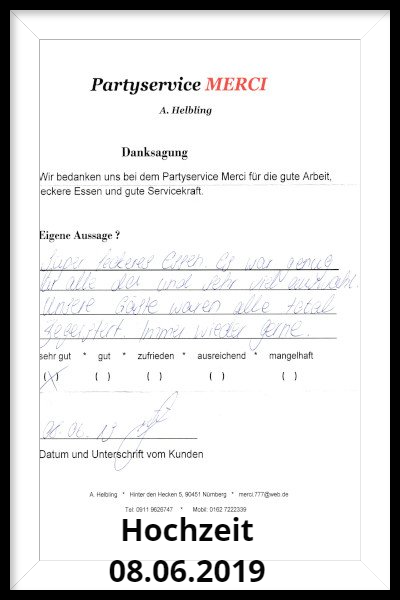 Partyservice MERCI
A. Helbling
Danksagung
Wir bedanken uns bei dem Partyservice Merci für die gute Arbeit,
eckere Essen und gute Servicekraft.
Eigene Aussage ?
Super leckeres Essen Es war genug
für alle da und sehr viel Auswahl.
Unsere Gäste waren alle total
begeistert. Immer wieder gerne.
sehr gut * gut * zufrieden * ausreichend * mangelhaft
(X) ( ) ( ) ( ) ( )
Datum und Unterschrift vom Kunden
A. Helbling * Hinter den Hecken 5, 90451 Nürnberg * merci.777@web.de
Tel: 0911 9626747 * Mobil: 0162 7222339
Hochzeit
08.06.2019